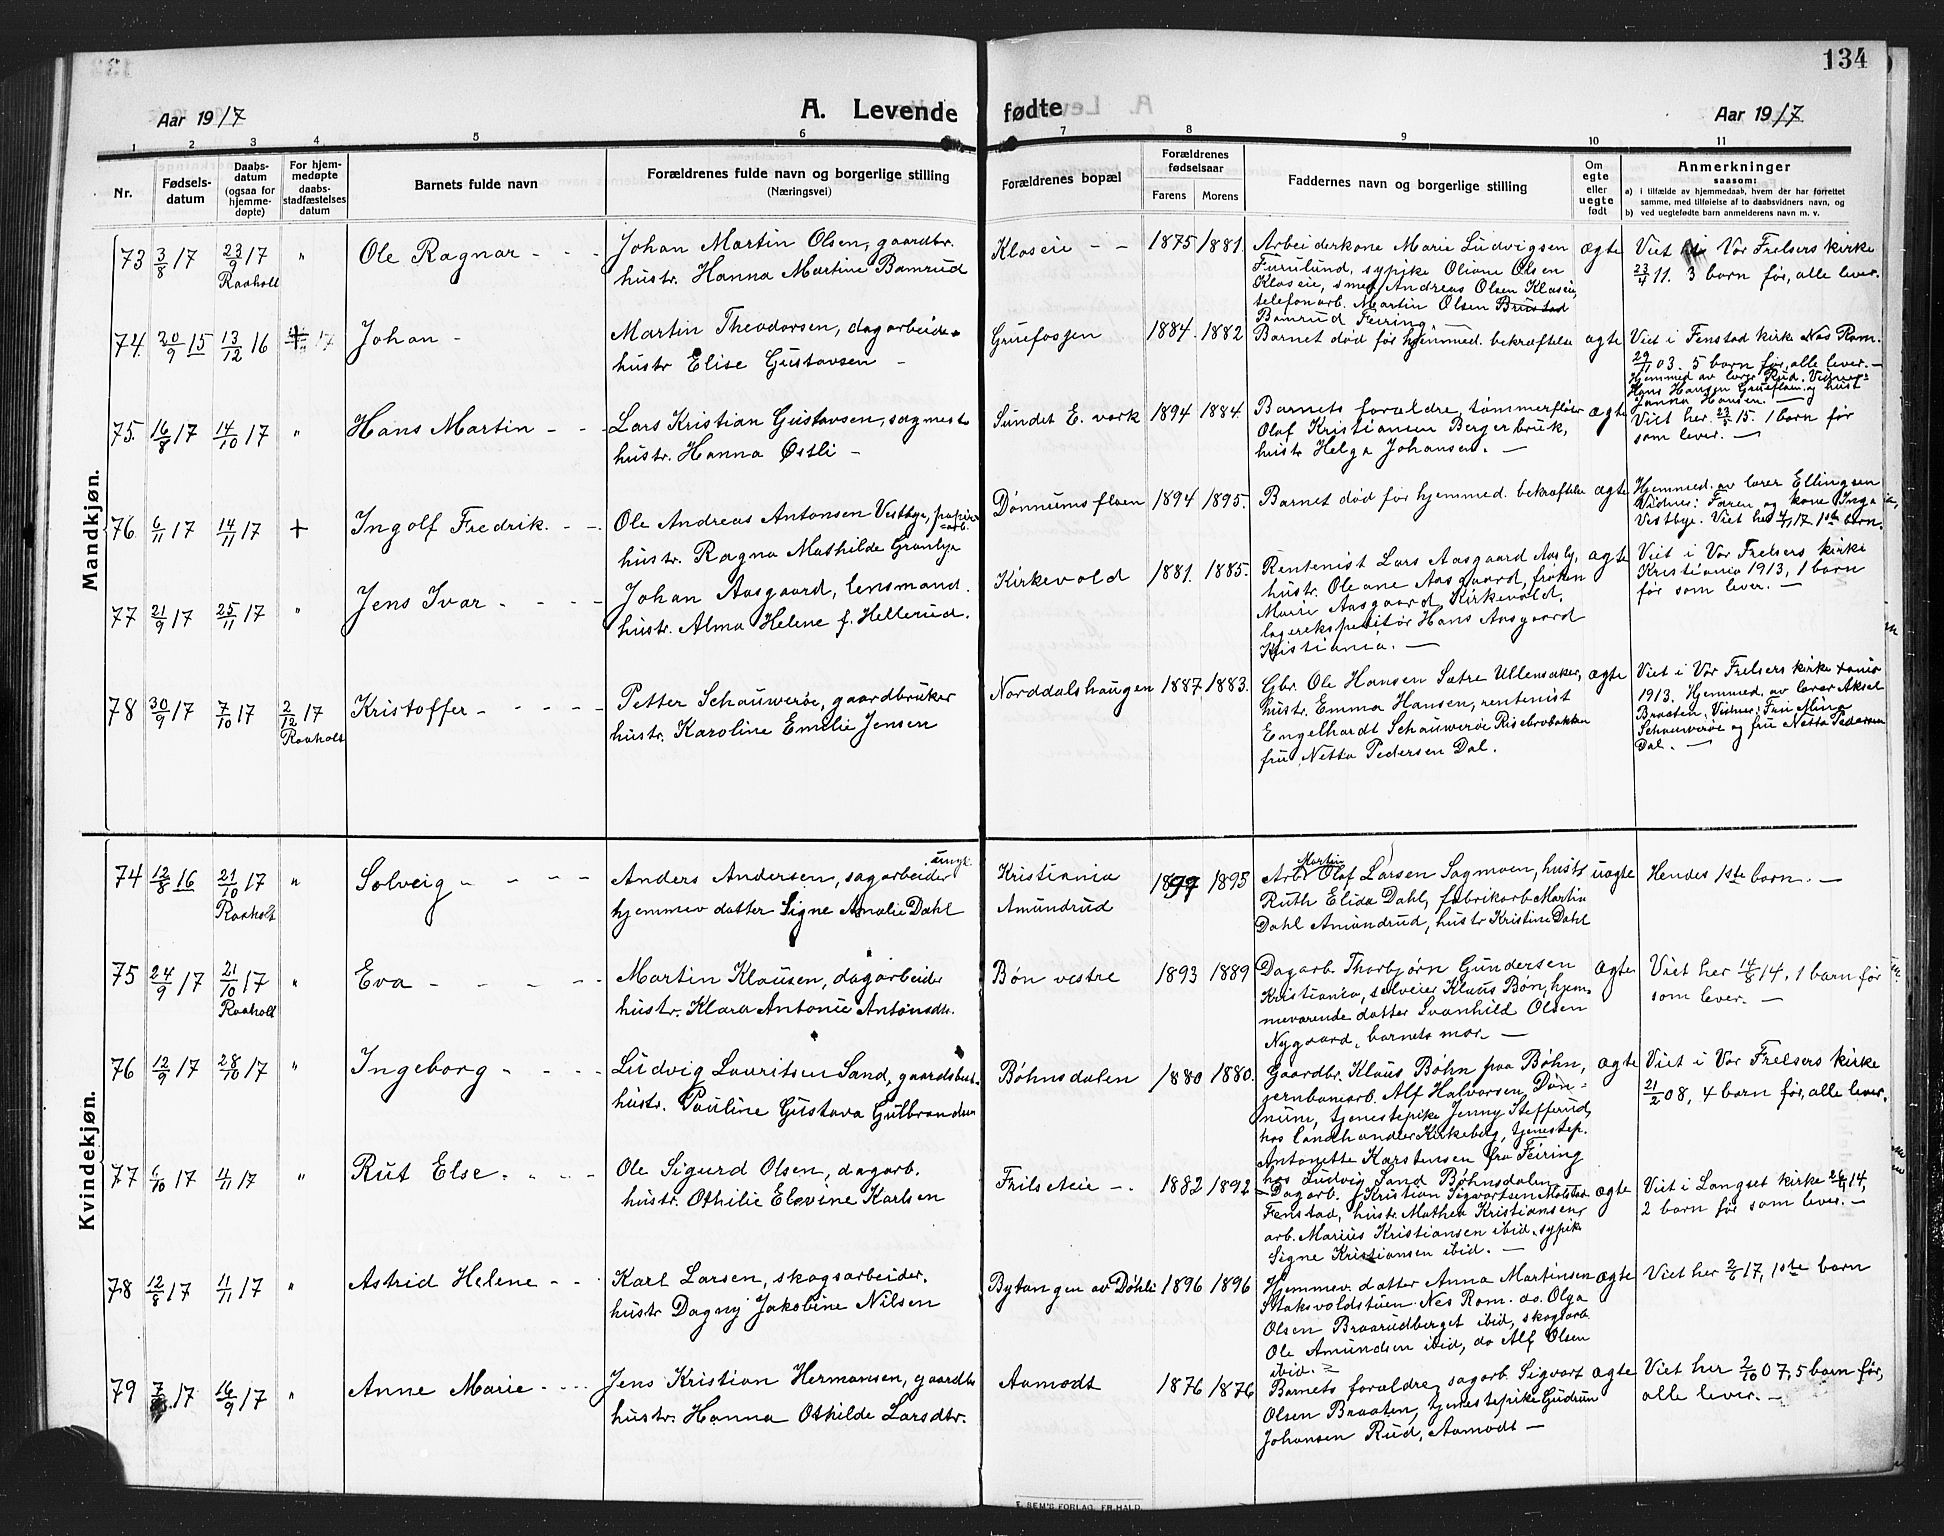 134
Aar 1917
A. Levende fødte
Aar 1917
1 2 3 4 5 6 7 8 9 10 11
Nr.
Fødsels-
datum
Daabs-
datum
(ogsaa for
hjemme-
døpte)
For hjem-
medøpte
daabs-
stadfæstelses
datum
Barnets fulde navn
Forældrenes fulde navn og borgerlige stilling
(Næringsvei)
Forældrenes bopæl
Forældrenes
fødselsaar
Farens Morens
Faddernes navn og borgerlige stilling
Om
egte
eller
uegte
født
Anmerkninger
saasom:
a) i tilfælde av hjemmedaab, hvem der har forrettet
samme, med tilføielse af to daabsvidners navn, og
b) ved uegtefødte barn anmelderens navn m. v.
Mandkjøn.
73 3/8 17 23/9 17 "
Raaholt
Ole Ragnar - -
Johan Martin Olsen, gaardbr.
hustr. Hanna Martine Bamrud
Kloseie - - 1875 1881.
Arbeiderkone Marie Ludvigsen
Furulund, sypike Oliane Olsen
Kloseie, smed Andreas Olsen Kloseie,
telefonarb. Martin Olsen Brustad
Bamrud Feiring.
ægte
Viet i Vor Frelsers kirke
23/4 11. 3 born før, alle lever.
74. 20/9 15 13/12 16
Johan -
Martin Theodorsen, dagarbeider
hustr Elise Gustavsen -
Gruefossen 1884. 1882
Barnet død før hjemmed. bekræftelse ægte
Viet i Fenstad kirke Nes Rom.
29/11 03. 5 born før, alle lever. -
Hjemmed av lærer Rud. Vidner:
Hans Hansen Grueflaen og hust
Janna Hansen. -
75. 16/8 17 14/10 17 "
Hans Martin - -
Lars Kristian Gustavsen, sagmest
hustr. Hanna Østli -
Sundet E. værk 1894 1884.
Barnets forældre, tømmerfløter
Olaf Kristiansen Bergerbruk,
hustr Helga Johansen. -
ægte
Viet her 23/5 15. 1 born før
som lever. -
76. 6/11 17 14/11 17 +
Ingolf Fredrik. - -
Ole Andreas Antonsen Vestbye, papir
arb.
hustr. Ragna Mathilde Granlye
Dønnumsflaen 1894 1895.
Barnet død før hjemmed. bekræftelse ægte
Hjemmed. av lærer Ellingsen
Vidner: Faren og kone Inga
Vestbye. Viet her 4/1 17 1ste barn.
77 21/9 17 25/11 17 "
Jens Ivar - - - -
Johan Aasgaard, lensmand.
hustr. Alma Helene f. Hellerud.
Kirkevold 1881. 1885.
Rentenist Lars Aasgaard Aasly,
hustr. Oleane Aasgaard, frøken
Marie Aasgaard Kirkevold,
lagerekspeditør Hans Aasgaard
Kristiania. -
ægte
Viet i Vor Frelsers kirke
Kristiania 1913, 1 born
før som lever. -
78 30/9 17 7/10 17 2/12 17
Raaholt
Kristoffer - - - - -
Petter Schauwerøe, gaardbruker
hustr. Karoline Emelie Jensen
Norddalshaugen 1887 1883.
Gbr. Ole Hansen Sætre Ullensaker,
hustr. Emma Hansen, rentenist
Engelhardt Schauwerøe Risebrobakken
fru Netta Pedersen Dal.
ægte
Viet i Vor Frelsers kirke xania
1913. Hjemmed. av lærer Aksel
Braaten. Vidner: Fru Mina
Schauwerøe og fru Netta Pedersen
Dal. -
Kvindekjøn.
74 12/8 16 21/10 17 "
Raaholt
Solveig - - - -
Anders Andersen, sagarbeider ungk.
hjemmev datter Signe Amalie Dahl
Kristiania
Amundrud
1897 1895
Arb. Martin Olaf Larsen Sagmoen, hustr
Ruth Elida Dahl, fabrikarb Martin
Dahl Amundrud, hustr Kristine Dahl
uægte
Hendes 1ste born. -
75 24/9 17 21/10 17 "
Raaholt
Eva - - - - -
Martin Klausen, dagarbeider
hustr. Klara Antonie Antonsdtr.
Bøn vestre 1893 1889
Dagarb. Thorbjørn Gundersen
Kristiania, selveier Klaus Bøn, hjem-
meværende datter Svanhild Olsen
Nygaard, barnets mor. -
ægte
Viet her 14/8 14, 1 barn før
som lever. -
76 12/9 17 28/10 17 "
Ingeborg - - - -
Ludvig Lauritsen Sand, gaardsbest.
hustr. Pauline Gustava Gulbrandsen
Bøhnsdalen 1880 1880.
Gaardbr. Klaus Bøhn paa Bøhn,
jernbanearb. Alf Halvorsen Døn-
num, tjenestepike Jenny Stefferud,
hos landhandler Kirkeberg, tjenestep.
Antonette Karstensen fra Feiring
hos Ludvig Sand Bøhnsdalen
ægte
Viet i Vor Frelsers kirke
21/2 08, 4 born før, alle lever.
77 6/10 17 4/11 17 "
Rut Else. - - - -
Ole Sigurd Olsen, dagarb.
hustr. Othilie Elevine Karlsen
Frilseteie -. 1882 1892
Dagarb. Kristian Sigvartsen Molstad
Fenstad, hustr. Mathea Kristiansen,
arb. Marius Kristiansen ibid. sypike
Signe Kristiansen ibid. -
ægte
Viet i Langset kirke 26/4 14,
2 born før som lever. -
78 12/8 17 11/11 17 "
Astrid Helene - -
Karl Larsen, skogsarbeider.
hustr Dagny Jakobine Nilsen
Bytangen av Døhli 1896 1896
Hjemmev. datter Anna Martinsen
Staksvoldstuen Nes Rom. do. Olga
Olsen Braarudberget ibid, skogsarb
Ole Amundsen ibid, do Alf Olsen
ibid. -
ægte
Viet her 2/6 17, 1ste born
79 17 16/9 17 "
Anne Marie - - -
Jens Kristian Hermansen, gaardbr
hustr. Hanna Othilde Larsdtr.
Aamodt 1876 1876
Barnets forældre, sagarb. Sigvart
Olsen Braaten, tjenestepike Gudrun
Johansen Rud, Aamodt -
ægte
Viet her 2/10 07, 5 born før,
alle lever. -
E. SEM'S FORLAG, FR.HALD.